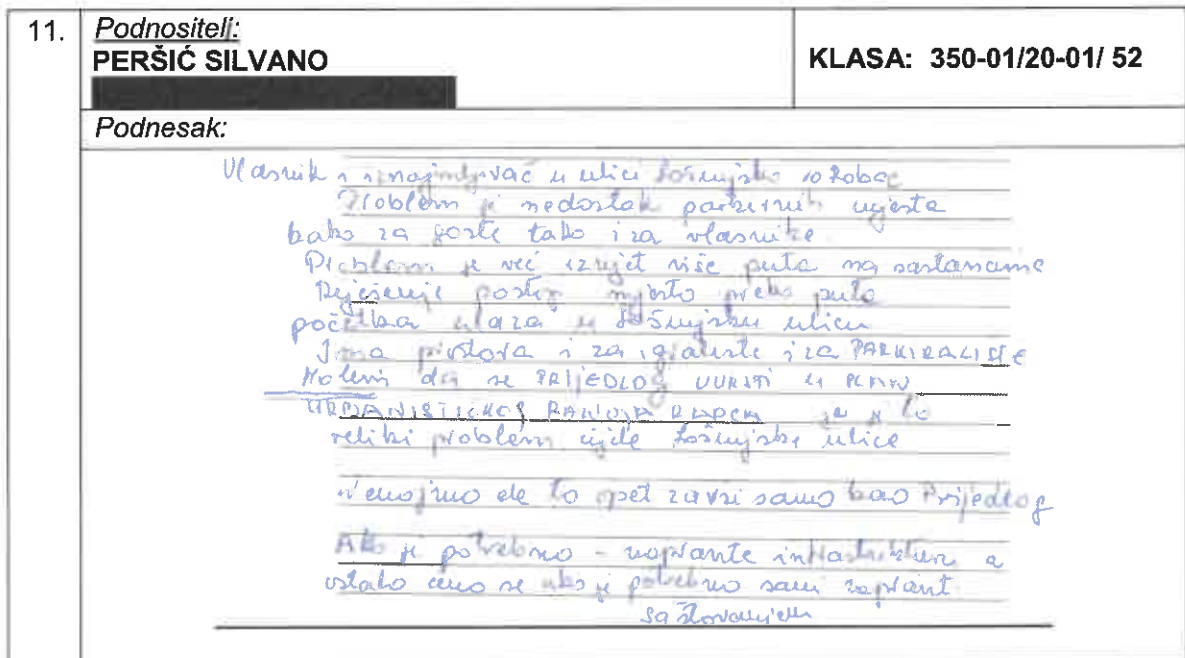 11.
Podnositelj:
PERŠIĆ SILVANO
KLASA: 350-01/20-01/ 52
Podnesak:
Vlasnik i iznajmljivač u ulici Lošinjska 10
Problem je nedostak parkirnih mjesta
kako za goste tako i za vlasnike
Problem je već iznijet više puta na sastancima
Rješenje postoji mjesto preko puta
početka ulaza u Lošinjsku ulicu
Ima prostora i za igralište i za PARKIRALIŠTE
Molim da se PRIJEDLOG UVRSTI U PLAN
URBANISTIČKOG RAZVOJA je to
veliki problem cijele Lošinjske ulice
Nemojmo da to opet završi samo kao Prijedlog
Ako je potrebno - napravite infrastrukturu a
ostalo ćemo se ako je potrebno sami napravit
Sa štovanjem